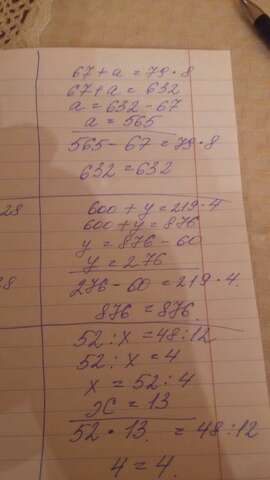 67 + a = 79 · 8
67 + a = 632
a = 632 - 67
a = 565
565 - 67 = 79 · 8
632 = 632
28
600 + y = 219 · 4
600 + y = 876
y = 876 - 60
y = 276
276 - 60 = 219 · 4.
876 = 876.
8
52 : x = 48 : 12
52 : x = 4
x = 52 : 4
x = 13
52 · 13. = 48 : 12
4 = 4.